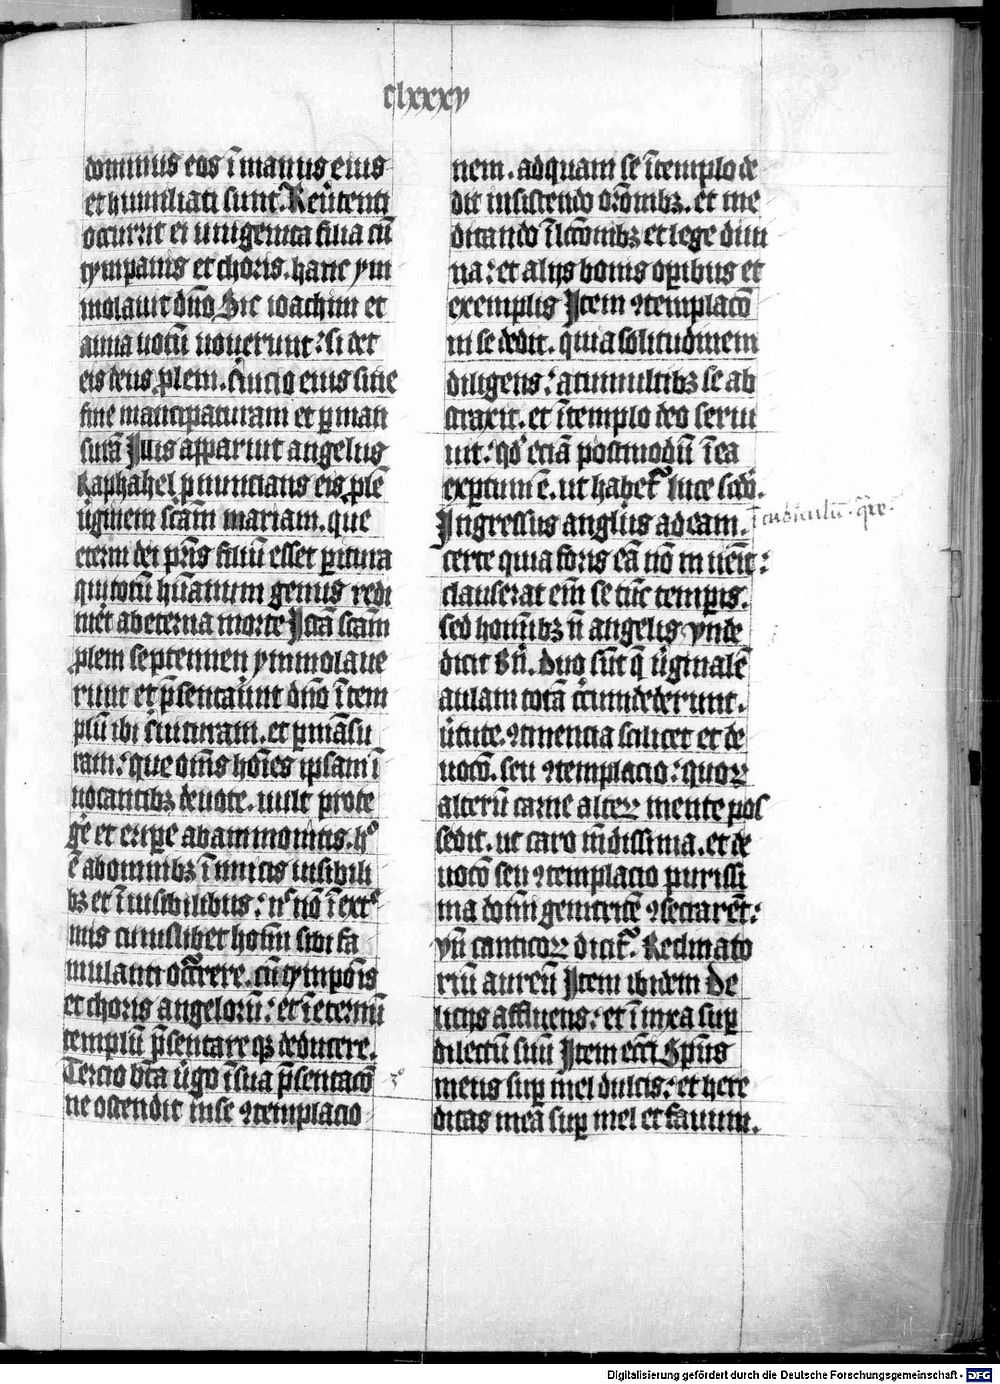 clxxxv
dominus eos ī manus eius
et humiliati sunt. Reūtenti
occurrit ei unigenita filia cū
tympanis et choris. hanc ym
molauit dn̄o Sic ioachim et
anna uotū uouerunt: si det
eis deus plem. s̄uicio eius sine
fine mancipaturam et ꝑman
surā Illis apparuit angelus
Raphahel p̄nuncians eis plē
ūginem scām mariam. que
eterni dei pr̄is filiū esset ꝑitura
qui totū hūanum genus redi
mēt ab eterna morte Istā scām
plem septennen ymmolaue
runt et p̄sentaūnt dn̄o ī tem
plū ibi s̄uituram. et ꝑmāsu
ram: que om̄s hoīes ipsam ī
uocantibꝫ deuote. uult prote
gē et eriꝑe ab ammonitis. hͦ
ē ab omnibꝫ īnimicis uisibili
bꝫ et īuisibilibus: nͨ nō ī extͤ
mis cuiuslibet hoīm sibi fa
mulanti occrere. cū tympōis
et choris angelorū: et ī eternū
templū p̄sentare qꝫ deducere.
Tercio bt̄a ūgo ī sua p̄sentacō 3ͦ
ne ostendit in se ꝯtemplacio
nem. ad quam se ī templo de
dit insistendo or̄onibꝫ. et me
ditando ī lc̄onibꝫ et lege diui
na: et alijs bonis oꝑibus et
exemplis Item ꝯtemplacō
ni se dedit. quia solitudinem
diligens: a tumultibꝫ se ab
straxit. et ī templo deo serui
uit: qd̄ eciā postmodū ī ea
exꝑtum ē. ut habet̄ luce scd̄o.
Ingressus angl̄us ad eam. cubiculū. q̄re.
certe quia foris eā nō inuēit:
clauserat em̄ se tūc temꝑis.
sed hoīnibꝫ n̄ angelis vnde
dicit bn̄. Duo sūt q̄ ūginalē
aulam totā cc̄umdederunt.
ūtute. ꝯtinencia scilicet et de
uocō. seu ꝯtemplacio: quoꝝ
alterū carne alteꝝ mente pos
sedit. ut caro mūdissima. et de
uocō seu ꝯtemplacio purissi
ma dom̄ genitricē ꝯsecrarēt:
vn̄ canticoꝝ dicit̄. Reclinato
riū aureū Item ibidem De
licijs affluens: et īnixa suꝑ
dilectū suū Item ecc̄i Sp̄us
meus suꝑ mel dulcis: et here
ditas mea suꝑ mel et fauum.
Digitalisierung gefördert durch die Deutsche Forschungsgemeinschaft - DFG